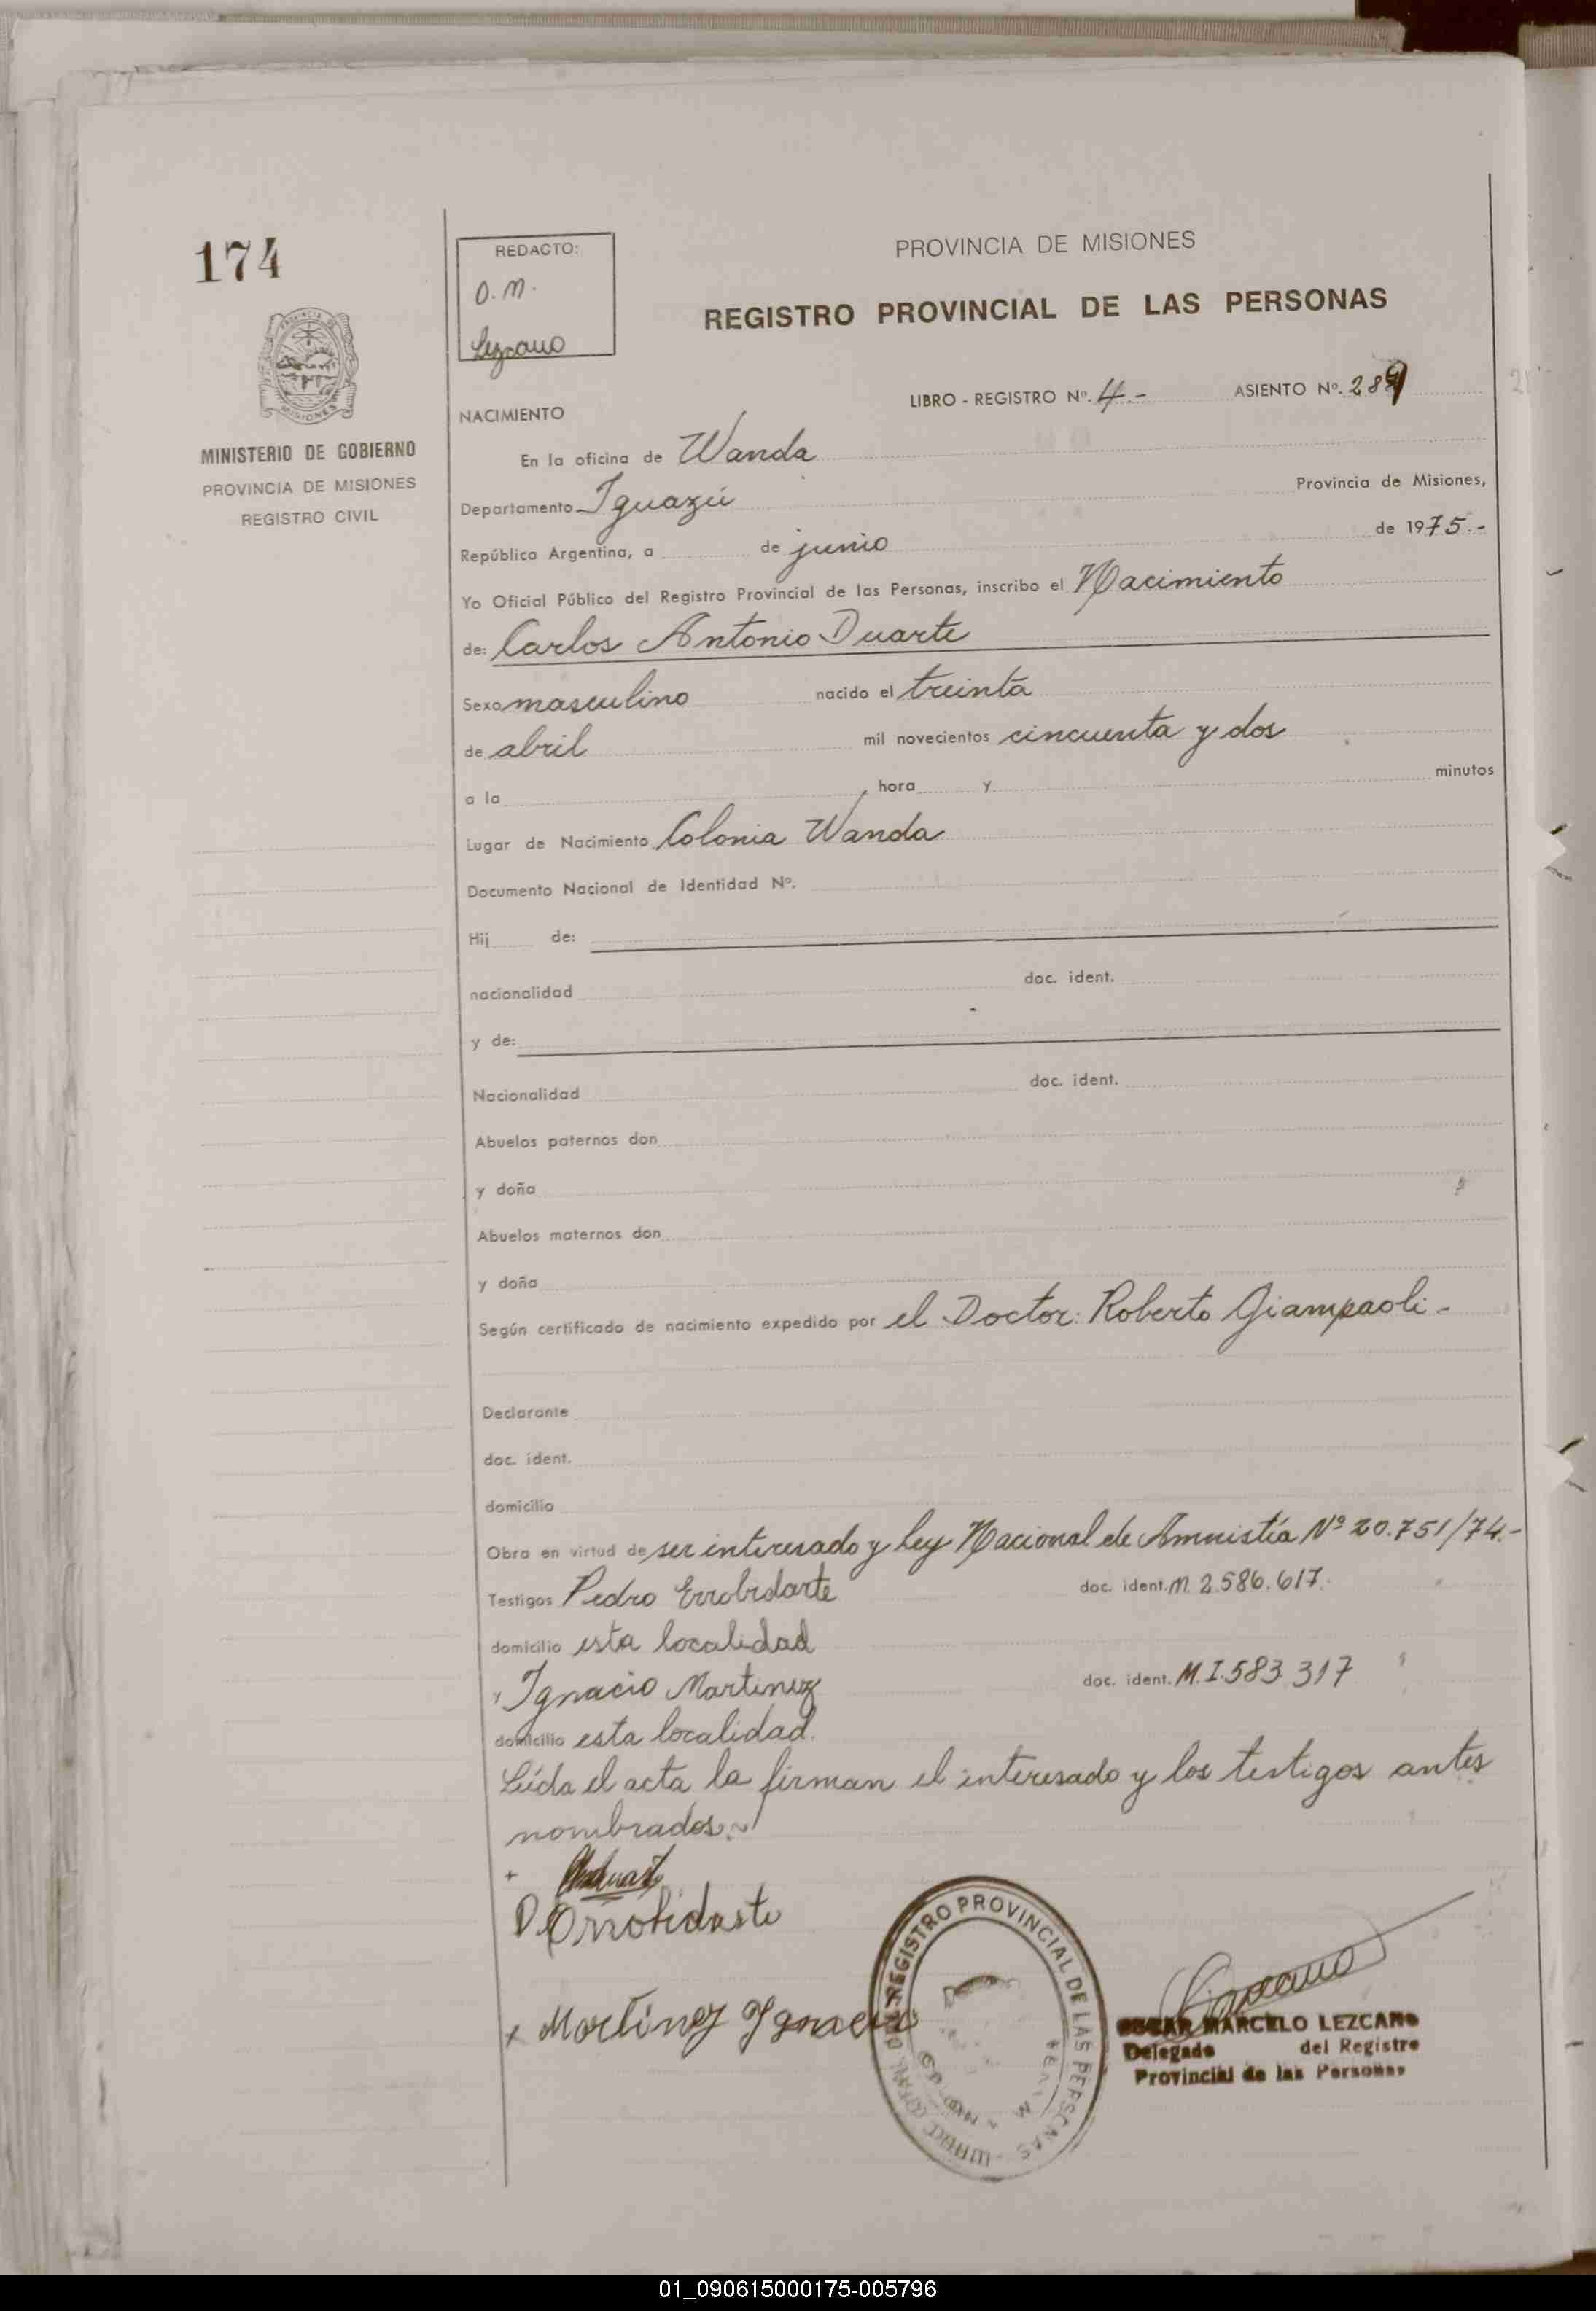 174
REDACTO:
O. M.
Lezcano
PROVINCIA DE MISIONES
REGISTRO PROVINCIAL DE LAS PERSONAS
LIBRO - REGISTRO Nº. 4.- ASIENTO Nº. 289
MINISTERIO DE GOBIERNO
PROVINCIA DE MISIONES
REGISTRO CIVIL
NACIMIENTO
En la oficina de Wanda
Departamento Iguazú Provincia de Misiones,
República Argentina, a de junio de 1975.-
Yo Oficial Público del Registro Provincial de las Personas, inscribo el Nacimiento
de: Carlos Antonio Duarte
Sexo masculino nacido el treinta
de abril mil novecientos cincuenta y dos
a la hora y minutos
Lugar de Nacimiento Colonia Wanda
Documento Nacional de Identidad Nº.
Hij de:
nacionalidad doc. ident.
y de:
Nacionalidad doc. ident.
Abuelos paternos don
y doña
Abuelos maternos don
y doña
Según certificado de nacimiento expedido por el Doctor: Roberto Giampaoli-
Declarante
doc. ident.
domicilio
Obra en virtud de ser interesado y Ley Nacional de Amnistía Nº 20.751/74.-
Testigos Pedro Errobidarte doc. ident. M. 2.586.617.
domicilio esta localidad
y Ignacio Martinez doc. ident. M.I. 583.317
domicilio esta localidad.
Leída el acta la firman el interesado y los testigos antes
nombrados.
P. Orrobidarte
x Martinez Ignacio
REGISTRO PROVINCIAL DE LAS PERSONAS
OSCAR MARCELO LEZCANO
Delegado del Registro
Provincial de las Personas
01_090615000175-005796